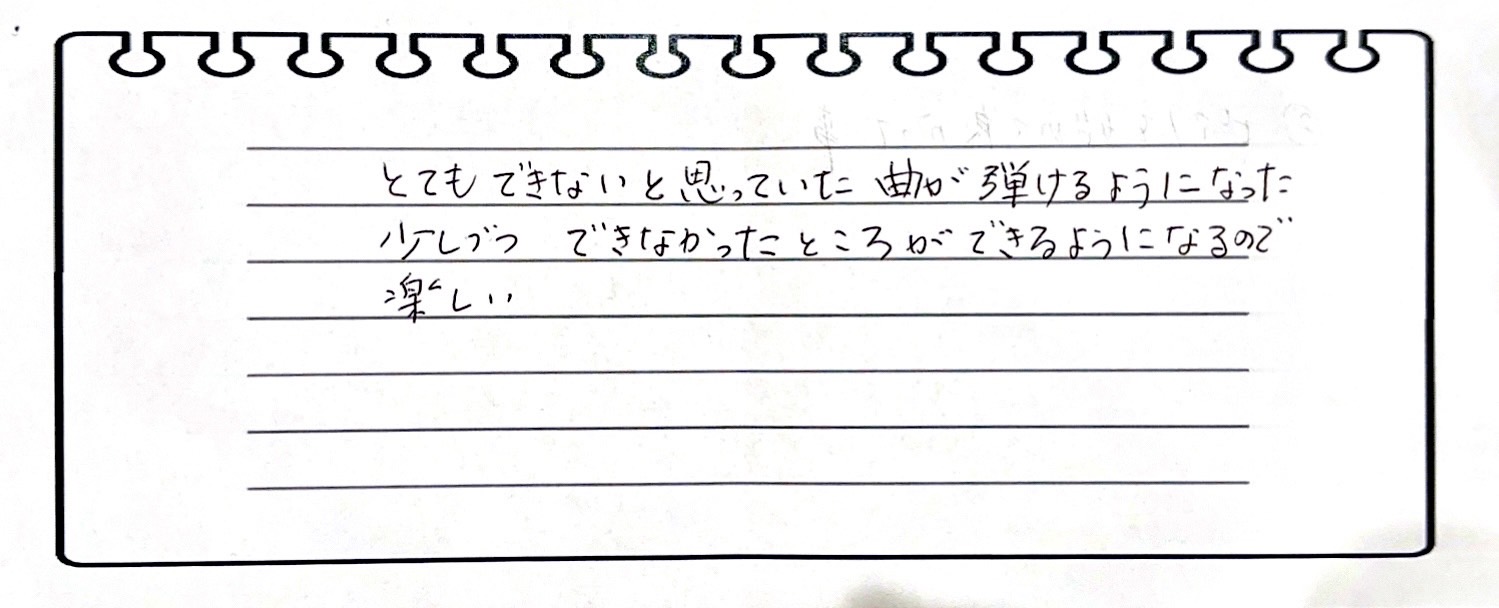 とてもできないと思っていた曲が弾けるようになった
少しづつ できなかったところができるようになるので
楽しい